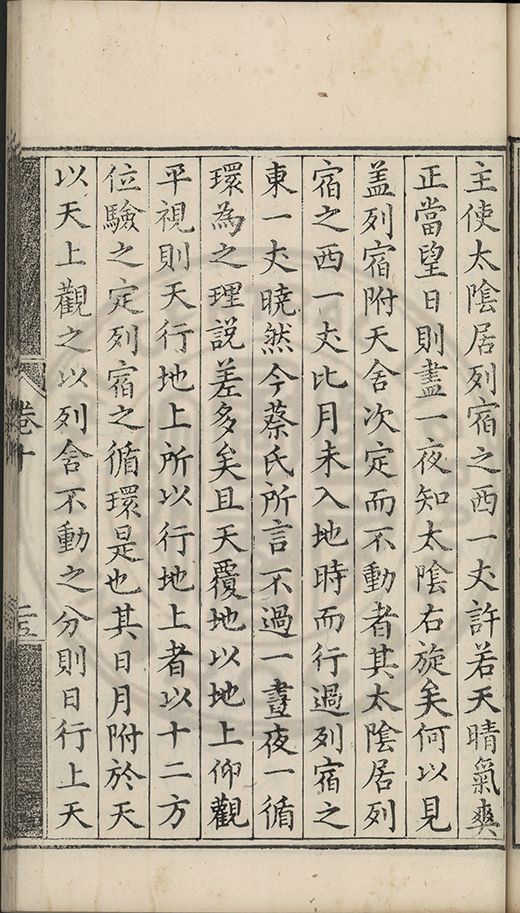 主使太陰居列宿之西一𠀋許若天晴氣爽
正當望日則盡一夜知太陰右旋矣何以見
盖列宿附天舍次定而不動者其太陰居列
宿之西一𠀋比月未入地時而行過列宿之
東一𠀋曉然今蔡氏所言不過一晝夜一循
環為之理說差多矣且天覆地以地上仰觀
平視則天行地上所以行地上者以十二方
位驗之定列宿之循環是也其日月附於天
以天上觀之以列舍不動之分則日行上天
卷十